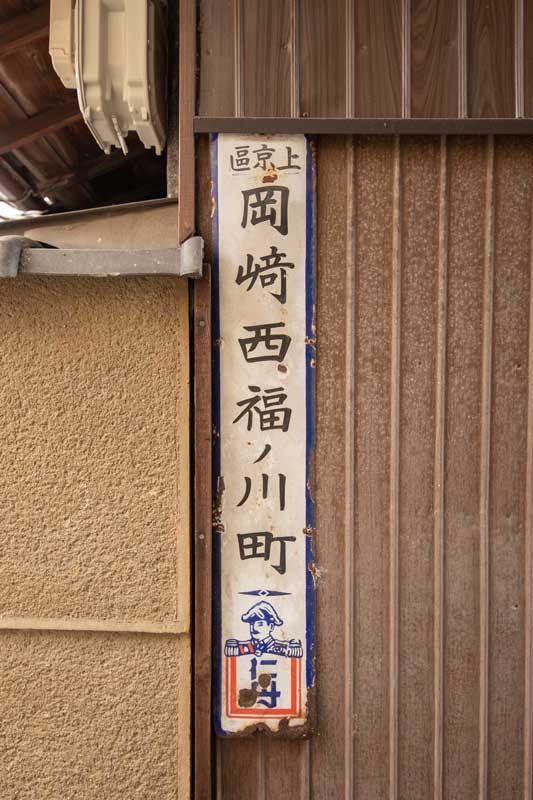 上京區
岡﨑西福ノ川町
仁丹